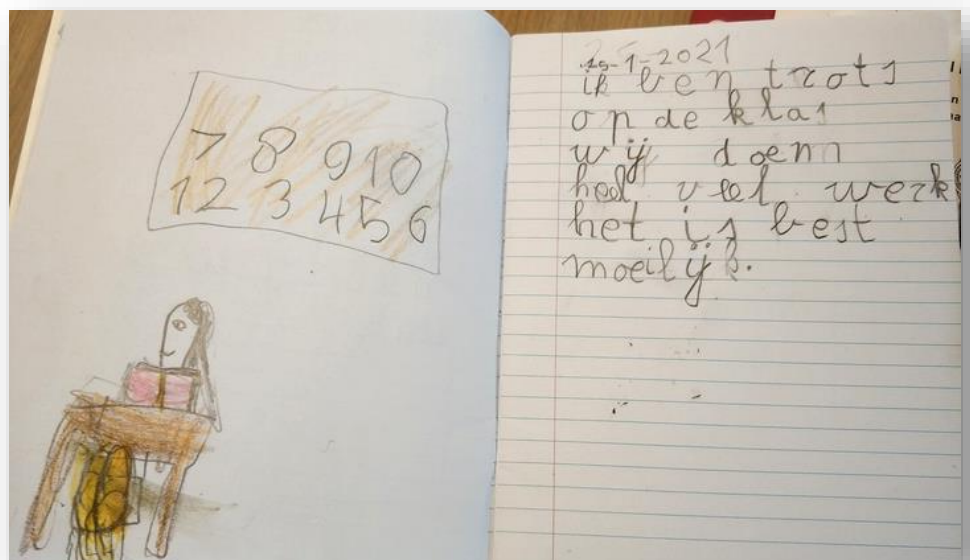 7 8 9 10
1 2 3 4 5 6
15-1-2021
ik ben trots
op de klas
wij doenn
heel veel werk
het is best
moeilijk.